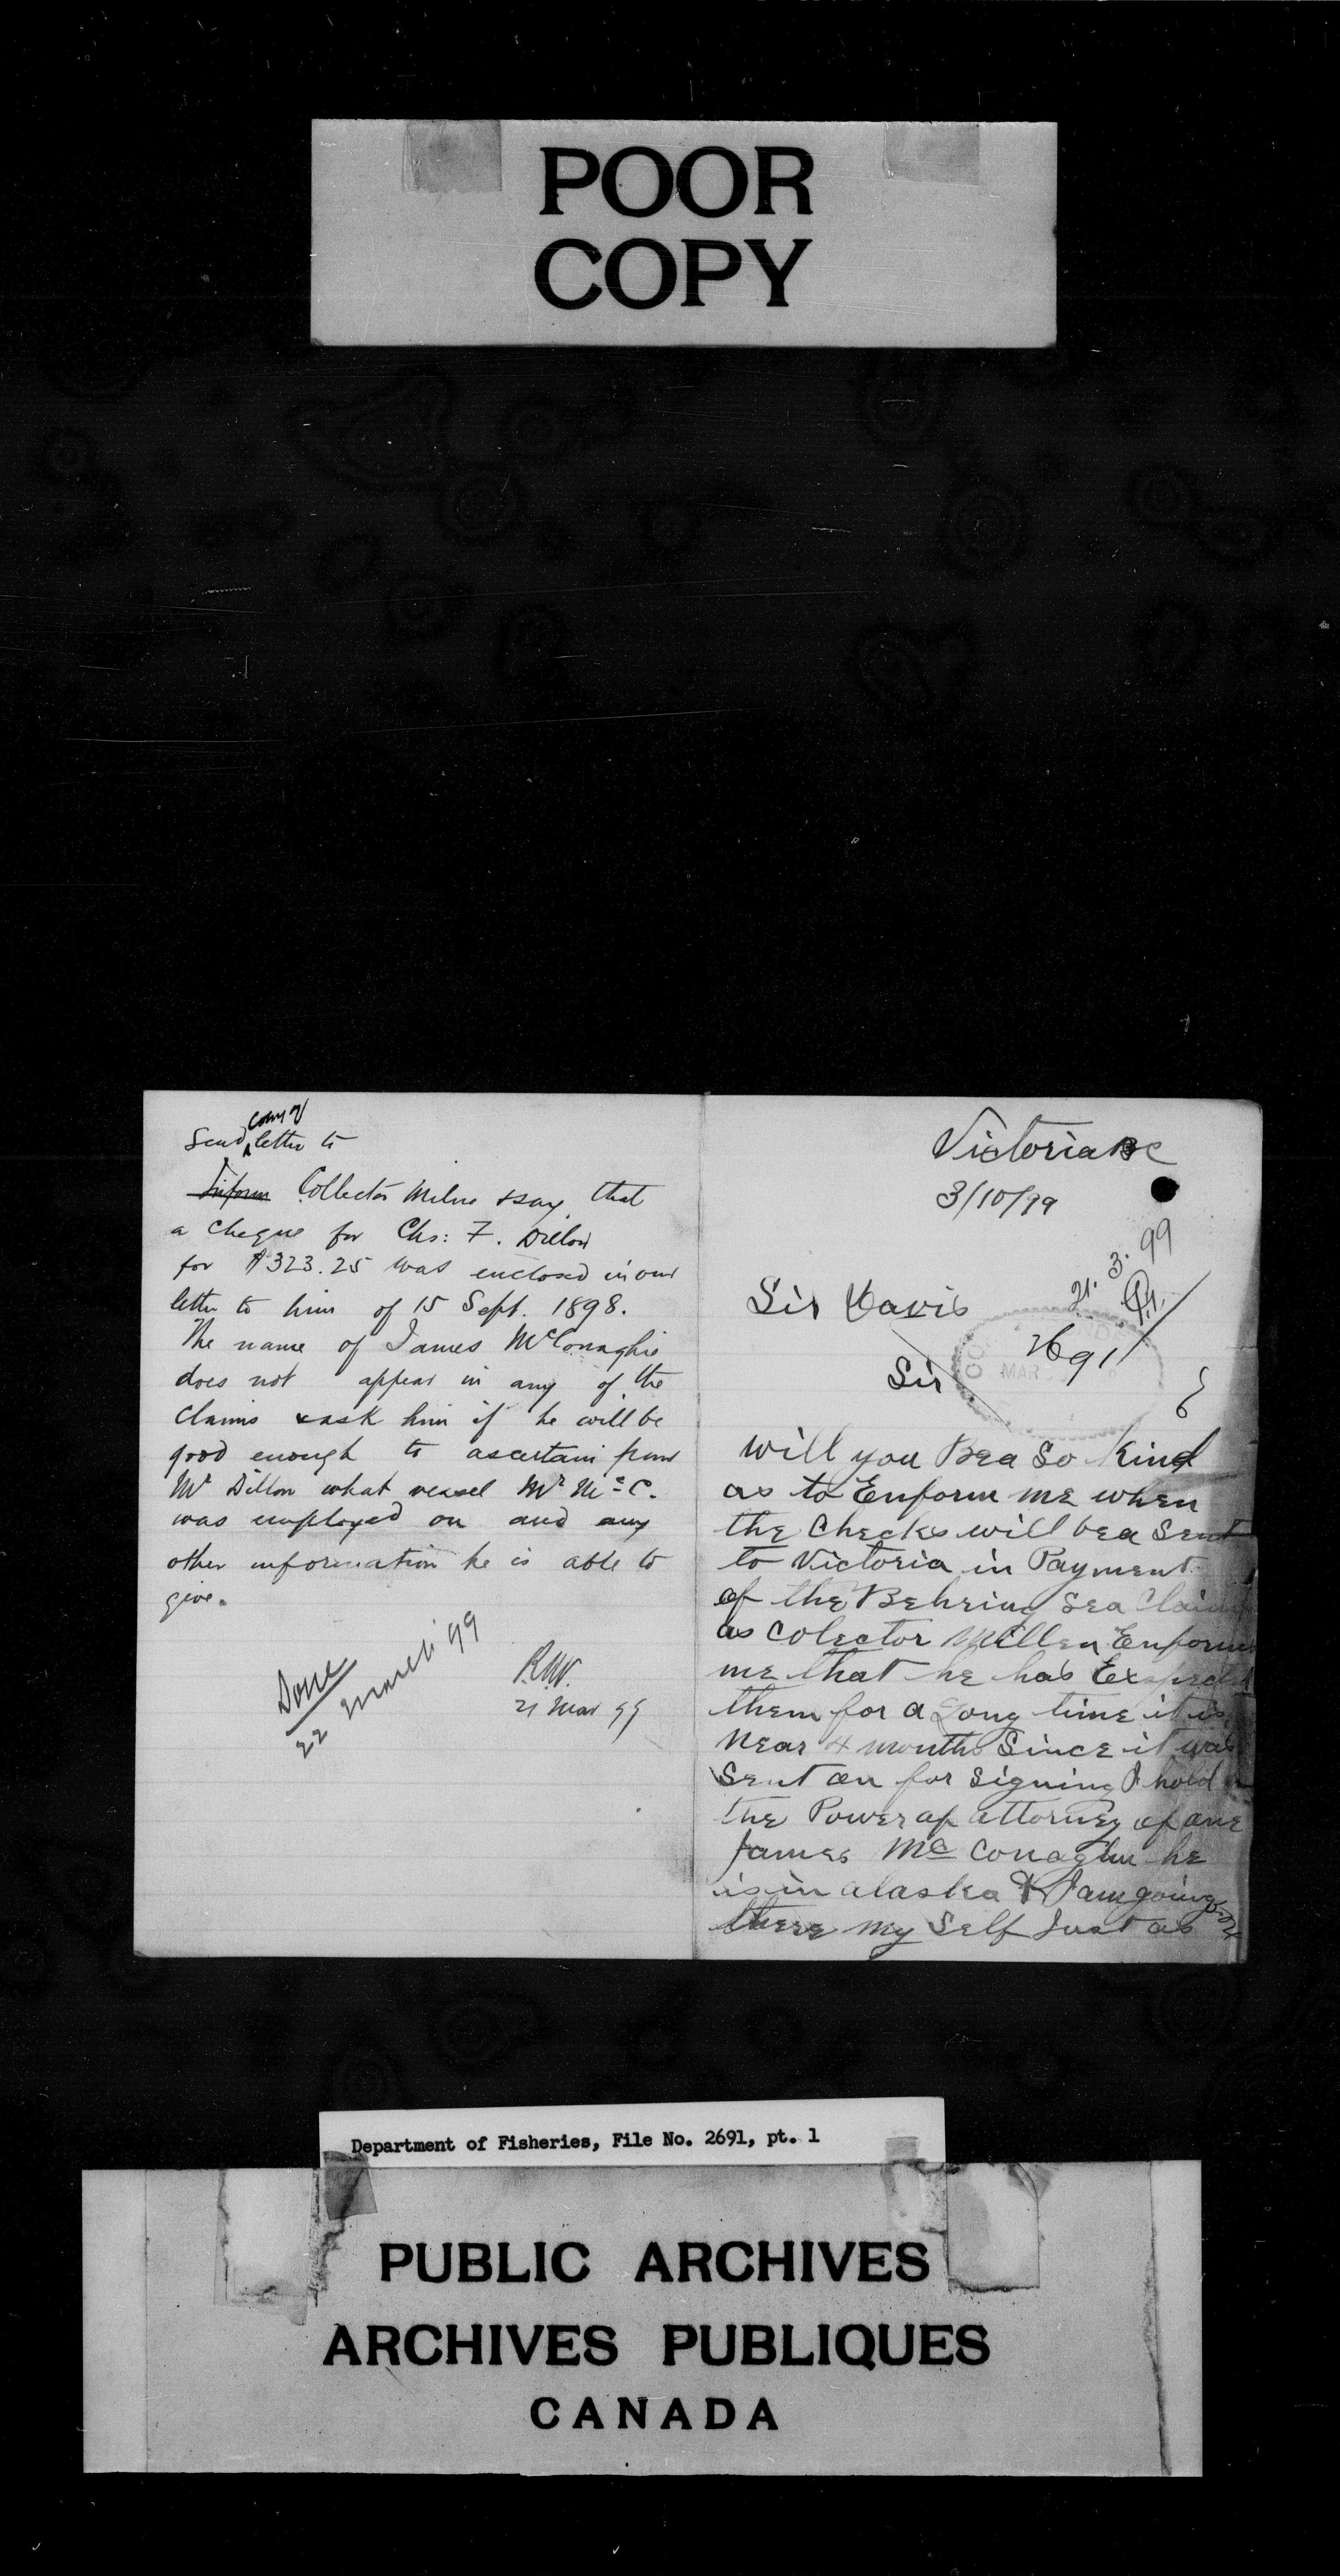 POOR
COPY
copy of
Send letter to
Inform Collector Milne & say that
a cheque for Chs: F. Dillon
for $323.25 was enclosed in our
letter to him of 15 Sept. 1898.
The name of James McConaghie
does not appear in any of the
claims & ask him if he will be
good enough to ascertain from
Mr Dillon what vessel Mr McC.
was employed on and any
other information he is able to
give.
Done
22 March 99
R.N.V.
21 Mar 99
Victoria BC
3/10/99
21. 3. 99
Sir Davis
2691
Sir
MAR
will you Bea So Kind
as to Enform me when
the Checks will bea Sent
to Victoria in Payment
of the Behring Sea Claims
as Colector Millen Enforms
me that he has Expected
them for a Long time it is
Near 4 months Since it was
Sent on for Signing I hold
the Power of attorney of one
James Mc Conaghu he
is in alaska & I am going
there my Self Just as
Department of Fisheries, File No. 2691, pt. 1
PUBLIC ARCHIVES
ARCHIVES PUBLIQUES
CANADA